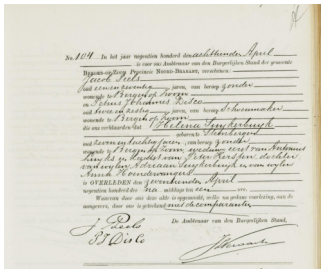 No. 104 In het jaar negentien honderd den achttienden April
is voor ons Ambtenaar van den Burgerlijken Stand der gemeente
BERGEN-OP-ZOOM Provincie NOORD-BRABANT, verschenen:
Jacob Peels
oud een en zeventig jaren, van beroep zonder
wonende te Bergen op Zoom
en Petrus Johannes Disco
oud twee en zestig jaren, van beroep Schoenmaker
wonende te Bergen op Zoom
die ons verklaarden dat Helena
geboren te Steenbergen
oud zeven en tachtig jaren, van beroep zonder
wonende te Bergen op Zoom, weduwe eerst van Antonius
en laatst van Peter dochter
van wijlen Adriaan en van wijlen
Anna
is OVERLEDEN den zeventienden April
negentien honderd des na middags ten een ure.
Waarvan door ons deze akte is opgemaakt, welke na gedane voorlezing, aan de
aangevers, door ons is geteekend met de comparanten
J Peels
P J Disco
De Ambtenaar van den Burgerlijken Stand,